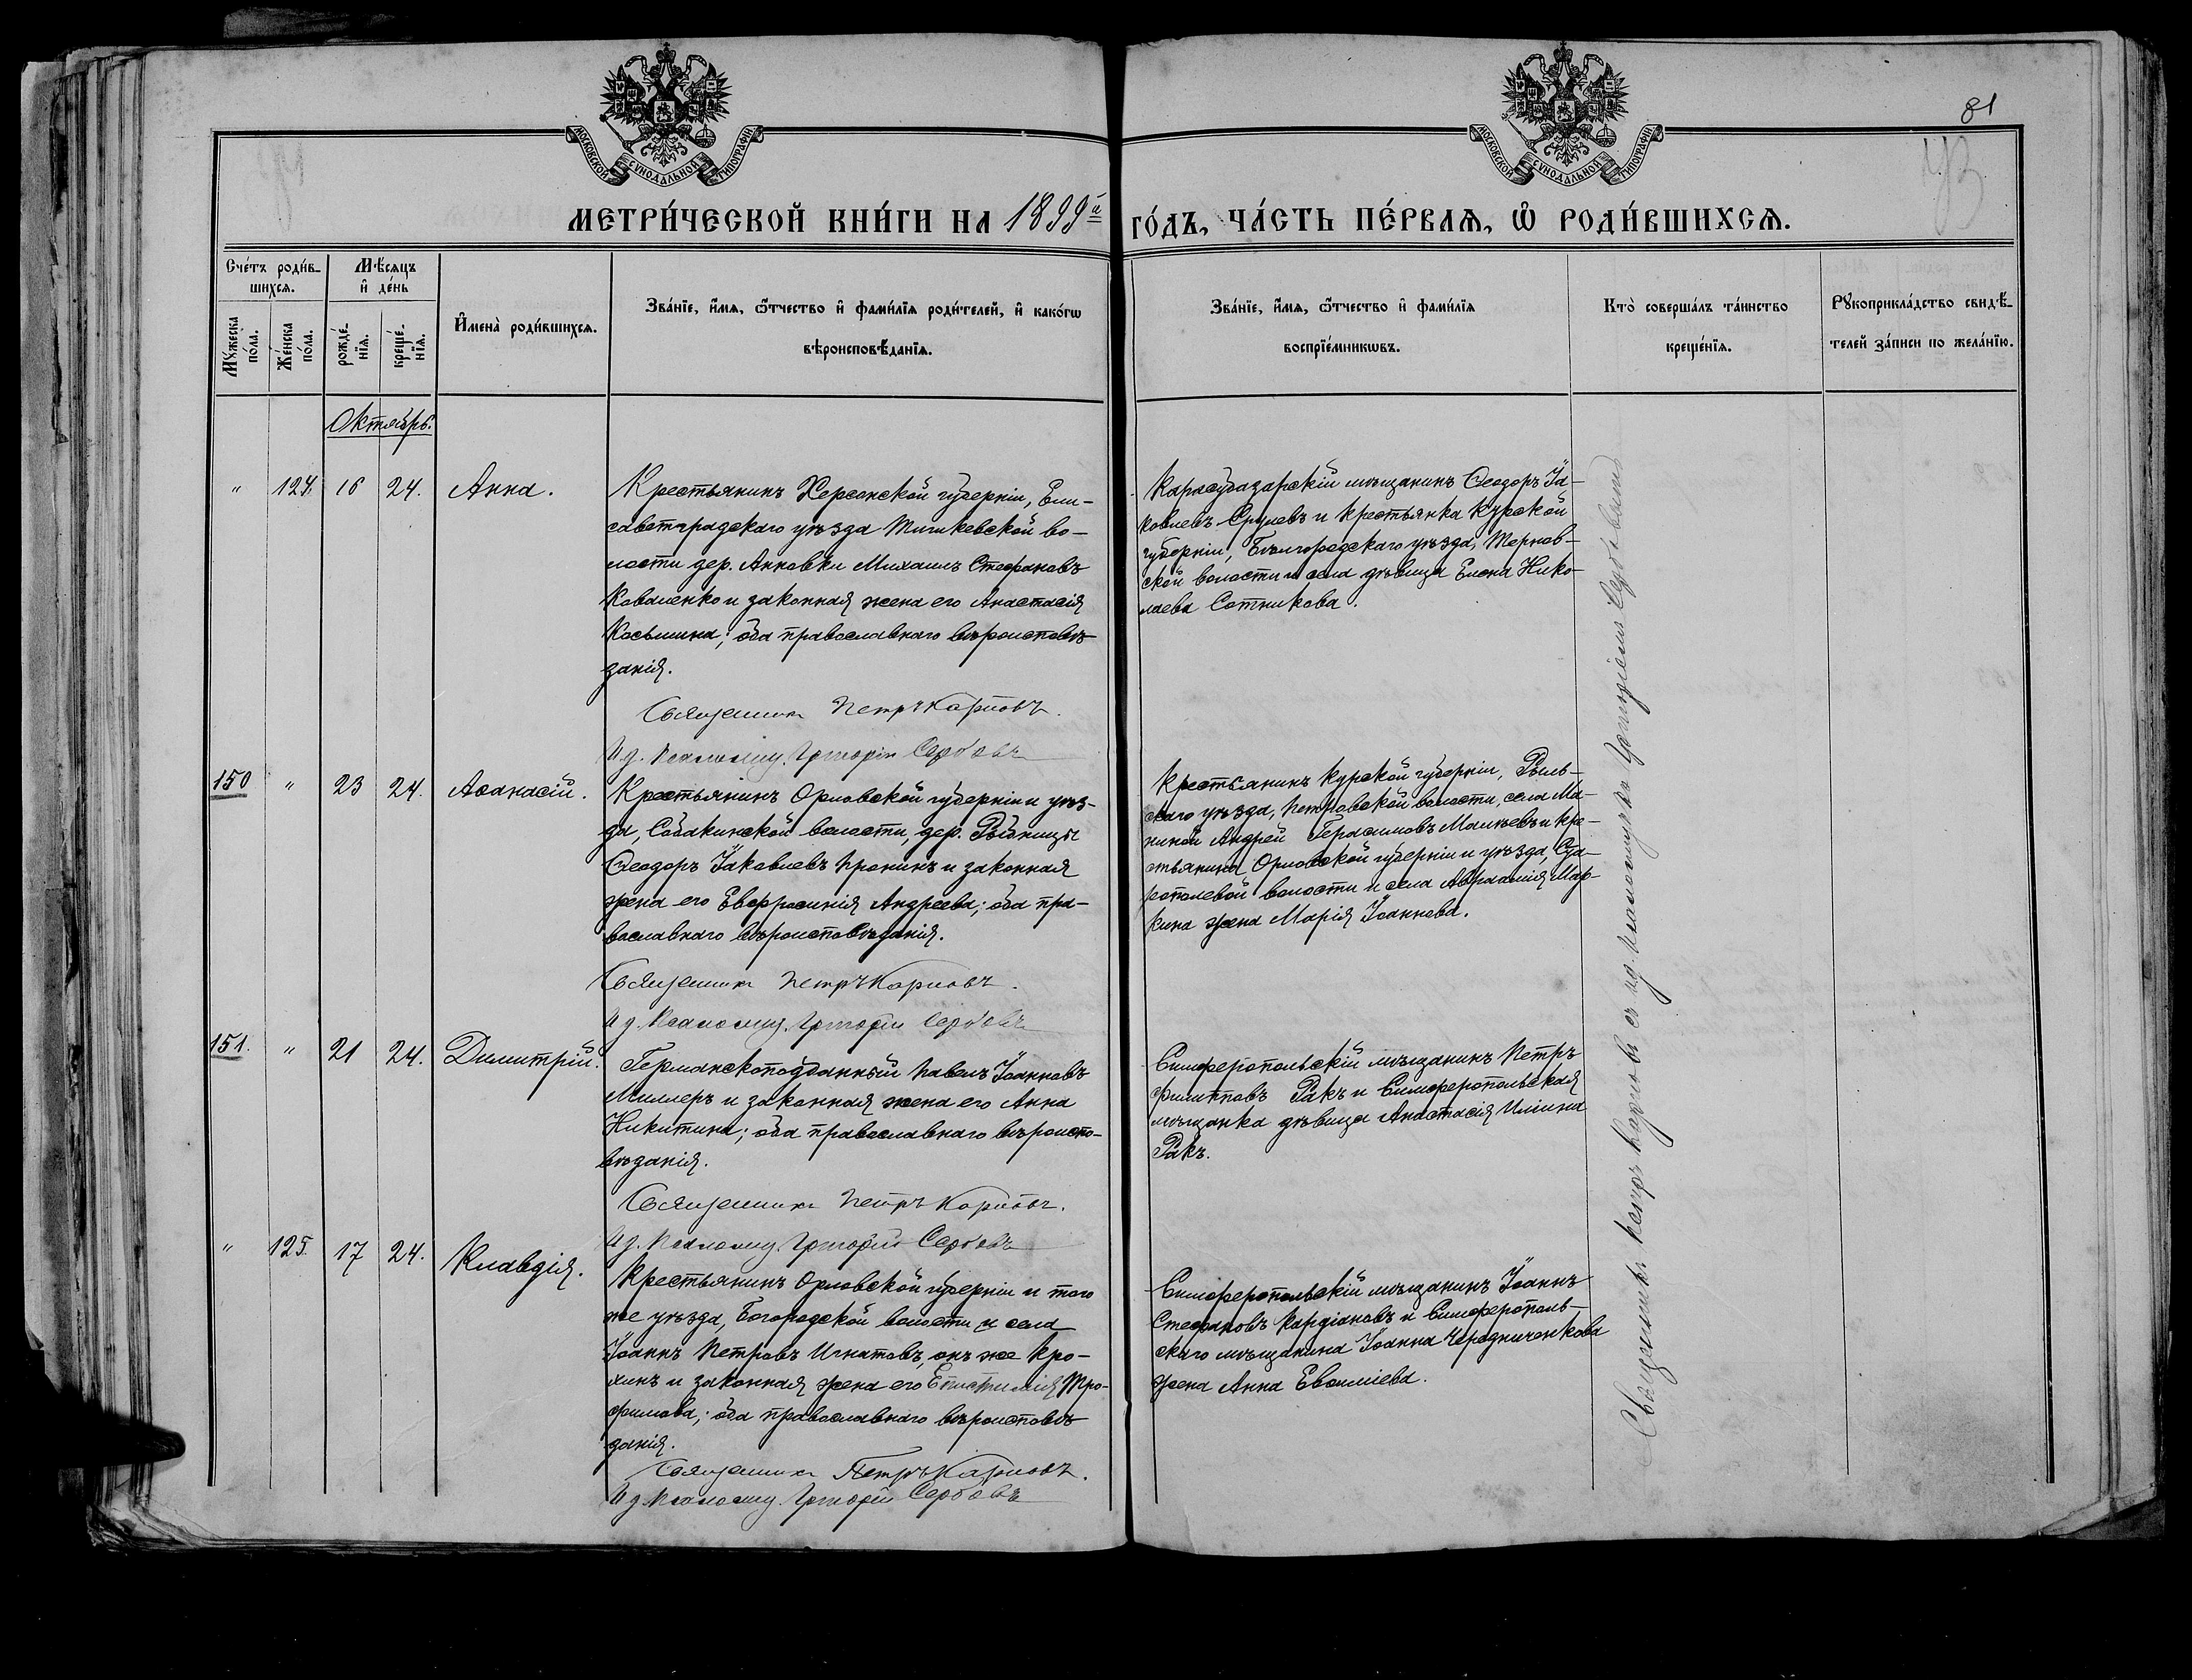 81
МОСКОВСКОЙ СѴНОДАЛЬНОЙ ТИПОГРАФІИ
МОСКОВСКОЙ СѴНОДАЛЬНОЙ ТИПОГРАФІИ
МЕТРИ́ЧЕСКОЙ КНИ́ГИ НА 1899й ГО́ДЪ, ЧА́СТЬ ПЕ́РВАѦ, Ѡ҆ РОДИ́ВШИХСѦ.
Сче́тъ роди́в-
шихсѧ.
Мѣ́сѧцъ
и҆ де́нь
Мꙋ́жеска по́ла.
Же́нска по́ла.
рожде́-нїѧ.
креще́-нїѧ.
И҆мена̀ роди́вшихсѧ.
Зва́нїе, и҆́мѧ, ѻ҆́тчество и҆ фами́лїѧ роди́телей, и҆ како́гѡ
вѣроисповѣ́данїѧ.
Зва́нїе, и҆́мѧ, ѻ҆́тчество и҆ фами́лїѧ
воспрїе́мникѡвъ.
Кто̀ соверша́лъ та́инство
креще́нїѧ.
Рꙋкоприкла́дство свидѣ́-
телей за́писи по жела́нїю.
Октябрь.
" 124. 16 24. Анна.
Крестьянинъ Херсонской губерніи, Ели-
саветградскаго уѣзда Тишкевской во-
лости дер. Анновки Михаилъ Стефановъ
Коваленко и законная жена его Анастасія
Косьмина; оба православнаго вѣроисповѣ-
данія.
Священникъ Петръ Карповъ.
И. д. Псаломщ. Григорій Сербовъ
Карасубазарскій мѣщанинъ Ѳеодоръ Іа-
ковлевъ и крестьянка Курской
губерніи, Бѣлгородскаго уѣзда, Тернов-
ской волости и села дѣвица Елена Нико-
лаева Сотникова.
150 " 23 24. Аѳанасій.
Крестьянинъ Орловской губерніи и уѣз-
да, Собакинской волости, дер. Рыбницы
Ѳеодоръ Іаковлевъ Пронинъ и законная
жена его Евфросинія Андреева; оба пра-
вославнаго вѣроисповѣданія.
Священникъ Петръ Карповъ.
И. д. Псаломщ. Григорій Сербовъ
Крестьянинъ Курской губерніи, Рыль-
скаго уѣзда, Петровской волости, села Ма-
Андрей Герасимовъ и кре-
стьянина Орловской губерніи и уѣзда,
волости и села Авраамія Мар-
кина жена Марія Іоаннова.
151. " 21 24. Димитрій.
Германскоподданный Павелъ Іоанновъ
Миллеръ и законная жена его Анна
Никитина; оба православнаго вѣроиспо-
вѣданія.
Священникъ Петръ Карповъ.
И. д. Псаломщ. Григорій Сербовъ
Симферопольскій мѣщанинъ Петръ
Филипповъ Ракъ и Симферопольская
мѣщанка дѣвица Анастасія Иліина
Ракъ.
" 125. 17 24. Клавдія.
Крестьянинъ Орловской губерніи и того
же уѣзда, Богородской волости и села
Іоаннъ Петровъ Игнатовъ, онъ же Кро-
хинъ и законная жена его Епистимія Тро-
фимова; оба православнаго вѣроисповѣ-
данія.
Священникъ Петръ Карповъ.
И. д. Псаломщ. Григорій Сербовъ
Симферопольскій мѣщанинъ Іоаннъ
Стефановъ Кардіановъ и Симферополь-
скаго мѣщанина Іоанна Чередниченкова
жена Анна Евѳиміева.
Священникъ Петръ Карповъ съ и. д. псаломщика Григоріемъ Сербовымъ